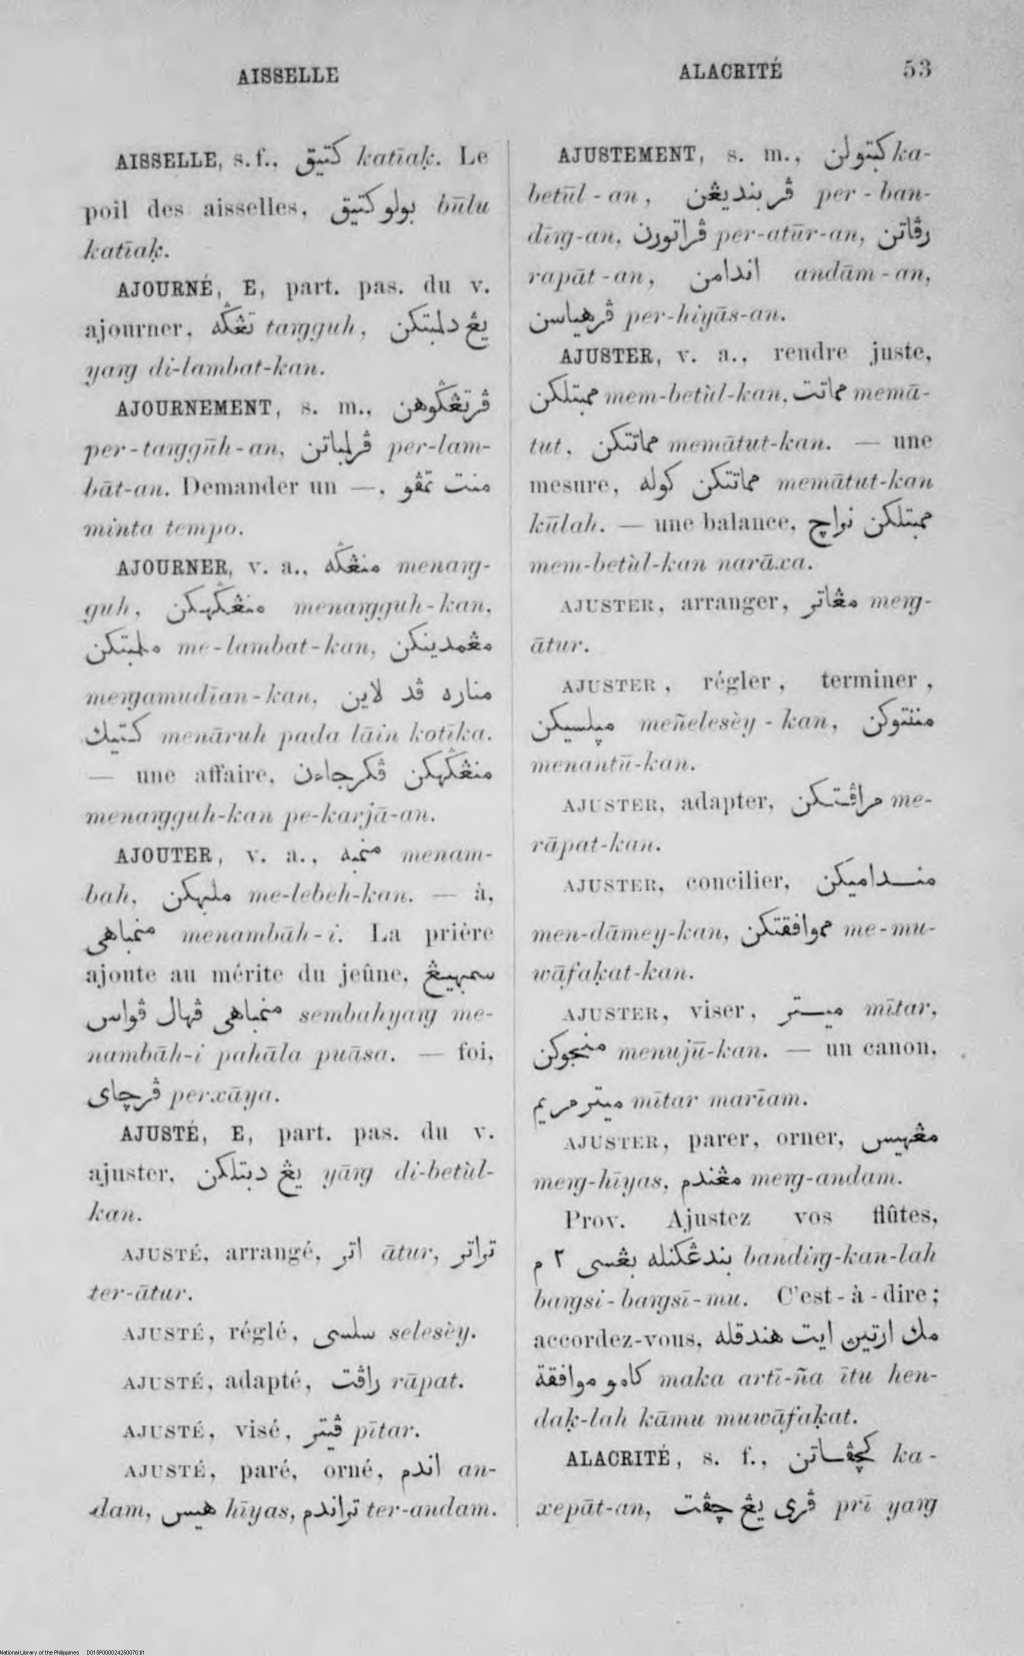 AISSELLE
ALACRITÉ 53
AISSELLE, s. f., كتيق katīaḳ. Le
poil des aisselles, بولو كتيق būlu
katīaḳ.
AJOURNÉ, E, part. pas. du v.
ajourner, تڠݢه tangguh, يڠ دلمبتكن
yang di-lambat-kan.
AJOURNEMENT, s. m., ڤرتڠݢوهن
per-tanggūh-an, ڤرلمباتن per-lam-
bāt-an. Demander un —, منت تمڤو
minta tempo.
AJOURNER, v. a., منڠݢه menang-
guh, منڠݢهكن menangguh-kan,
ملمبتكن me-lambat-kan, مڠمدينكن
mengamudīan-kan, مناره ڤد لاين
كتيك menāruh pada lāin kotīka.
— une affaire, منڠݢهكن ڤكرجاءن
menangguh-kan pe-karjā-an.
AJOUTER, v. a., منمبه menam-
bah, ملبهكن me-lebeh-kan. — à,
منمباهى menambāh-i. La prière
ajoute au mérite du jeûne, سمبهيڠ
منمباهى ڤهال ڤواس sembahyang me-
nambāh-i pahāla puāsa. — foi,
ڤرچاى perxāya.
AJUSTÉ, E, part. pas. du v.
ajuster, يڠ دبتلكن yāng di-betùl-
kan.
AJUSTÉ, arrangé, اتر ātur, تراتر
ter-ātur.
AJUSTÉ, réglé, سلسى selesèy.
AJUSTÉ, adapté, راڤت rāpat.
AJUSTÉ, visé, ڤيتر pītar.
AJUSTÉ, paré, orné, اندم an-
dam, هيس hīyas, تراندم ter-andam.
AJUSTEMENT, s. m., كبتولن ka-
betūl-an, ڤربنديڠن per-ban-
dīng-an, ڤراتورن per-atūr-an, رڤاتن
rapāt-an, اندامن andām-an,
ڤرهياسن per-hiyās-an.
AJUSTER, v. a., rendre juste,
ممبتلكن mem-betùl-kan, مماتت memā-
tut, مماتتكن memātut-kan. — une
mesure, مماتتكن كوله memātut-kan
kūlah. — une balance, ممبتلكن نراچ
mem-betùl-kan narāxa.
AJUSTER, arranger, مڠاتر meng-
ātur.
AJUSTER, régler, terminer,
ميلسيكن meñelesèy-kan, مننتوكن
menantū-kan.
AJUSTER, adapter, مراڤتكن me-
rāpat-kan.
AJUSTER, concilier, منداميكن
men-dāmey-kan, مموافقتكن me-mu-
wāfaḳat-kan.
AJUSTER, viser, ميتر mītar,
منجوكن menujū-kan. — un canon,
ميتر مريم mītar marīam.
AJUSTER, parer, orner, مڠهيس
meng-hīyas, مڠندم meng-andam.
Prov. Ajustez vos flûtes,
بندڠكنله بڠسى ٢ م banding-kan-lah
bangsi-bangsī-mu. C'est-à-dire;
accordez-vous, مك ارتين ايت هندقله
كامو موافقة maka artī-ña ītu hen-
daḳ-lah kāmu muwāfaḳat.
ALACRITÉ, s. f., كچڤاتن ka-
xepāt-an, ڤرى يڠ چڤت prī yang
National Library of the Philippines